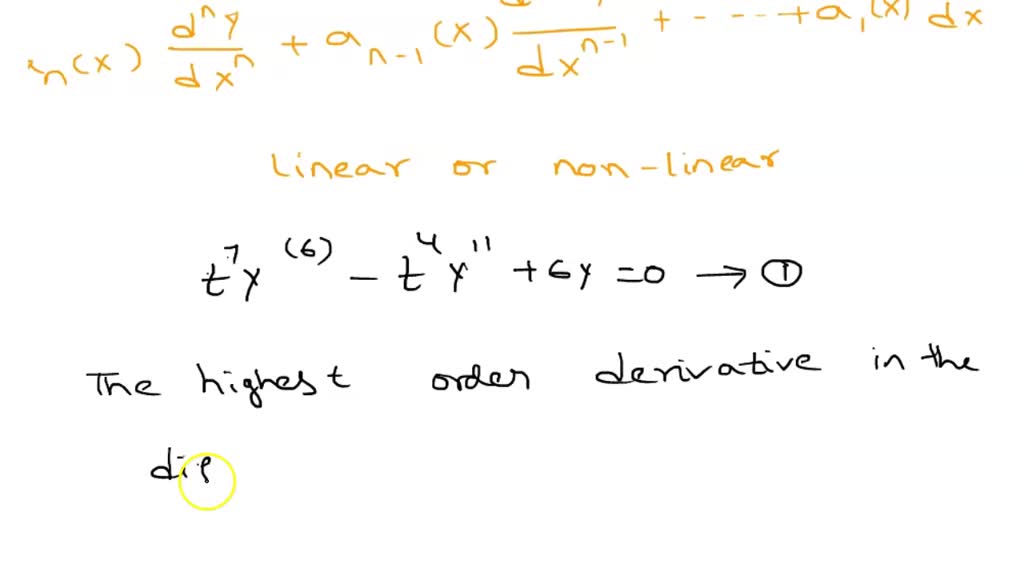 n(x) dⁿy/dxⁿ + aₙ₋₁(x) /dxⁿ⁻¹ + - - - + a₁(x) dx
Linear or non-linear
t⁷y⁽⁶⁾ - t⁴y'' + 6y = 0 → ①
The highest order derivative in the
dif